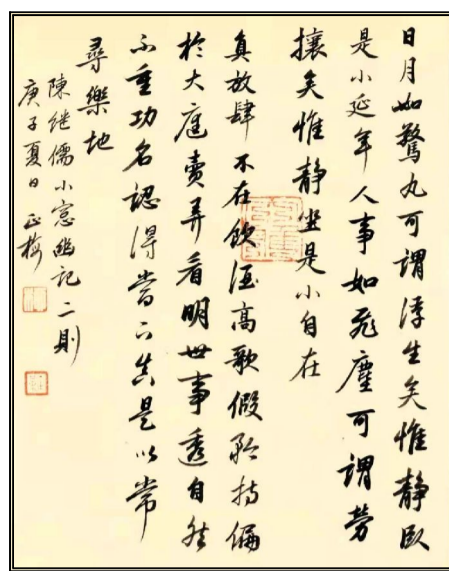 日月如驚丸可謂浮生矣惟靜臥
是小延年人事如飛塵可謂勞
攘矣惟靜坐是小自在
真放肆不在飲酒高歌假矜持偏
於大庭賣弄看明世事透自然
不重功名認得當下真是以常
尋樂地
陳继儒小窓幽記二則
庚子夏日